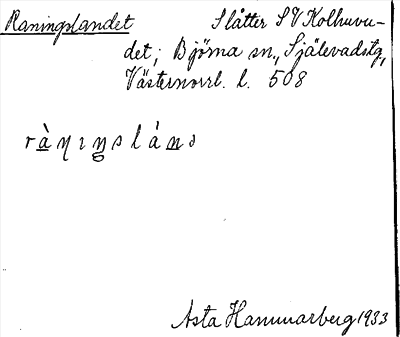 Raningslandet Slåtter SV Kolhuvu-
det; Björna sn., Själevadstg,
Västernorrl. l. 508
rànıŋslànd
Asta Hammarberg 1933